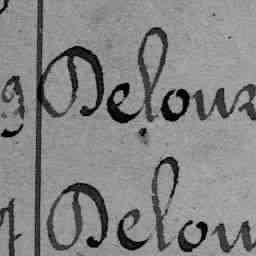 9 Delour
Delou